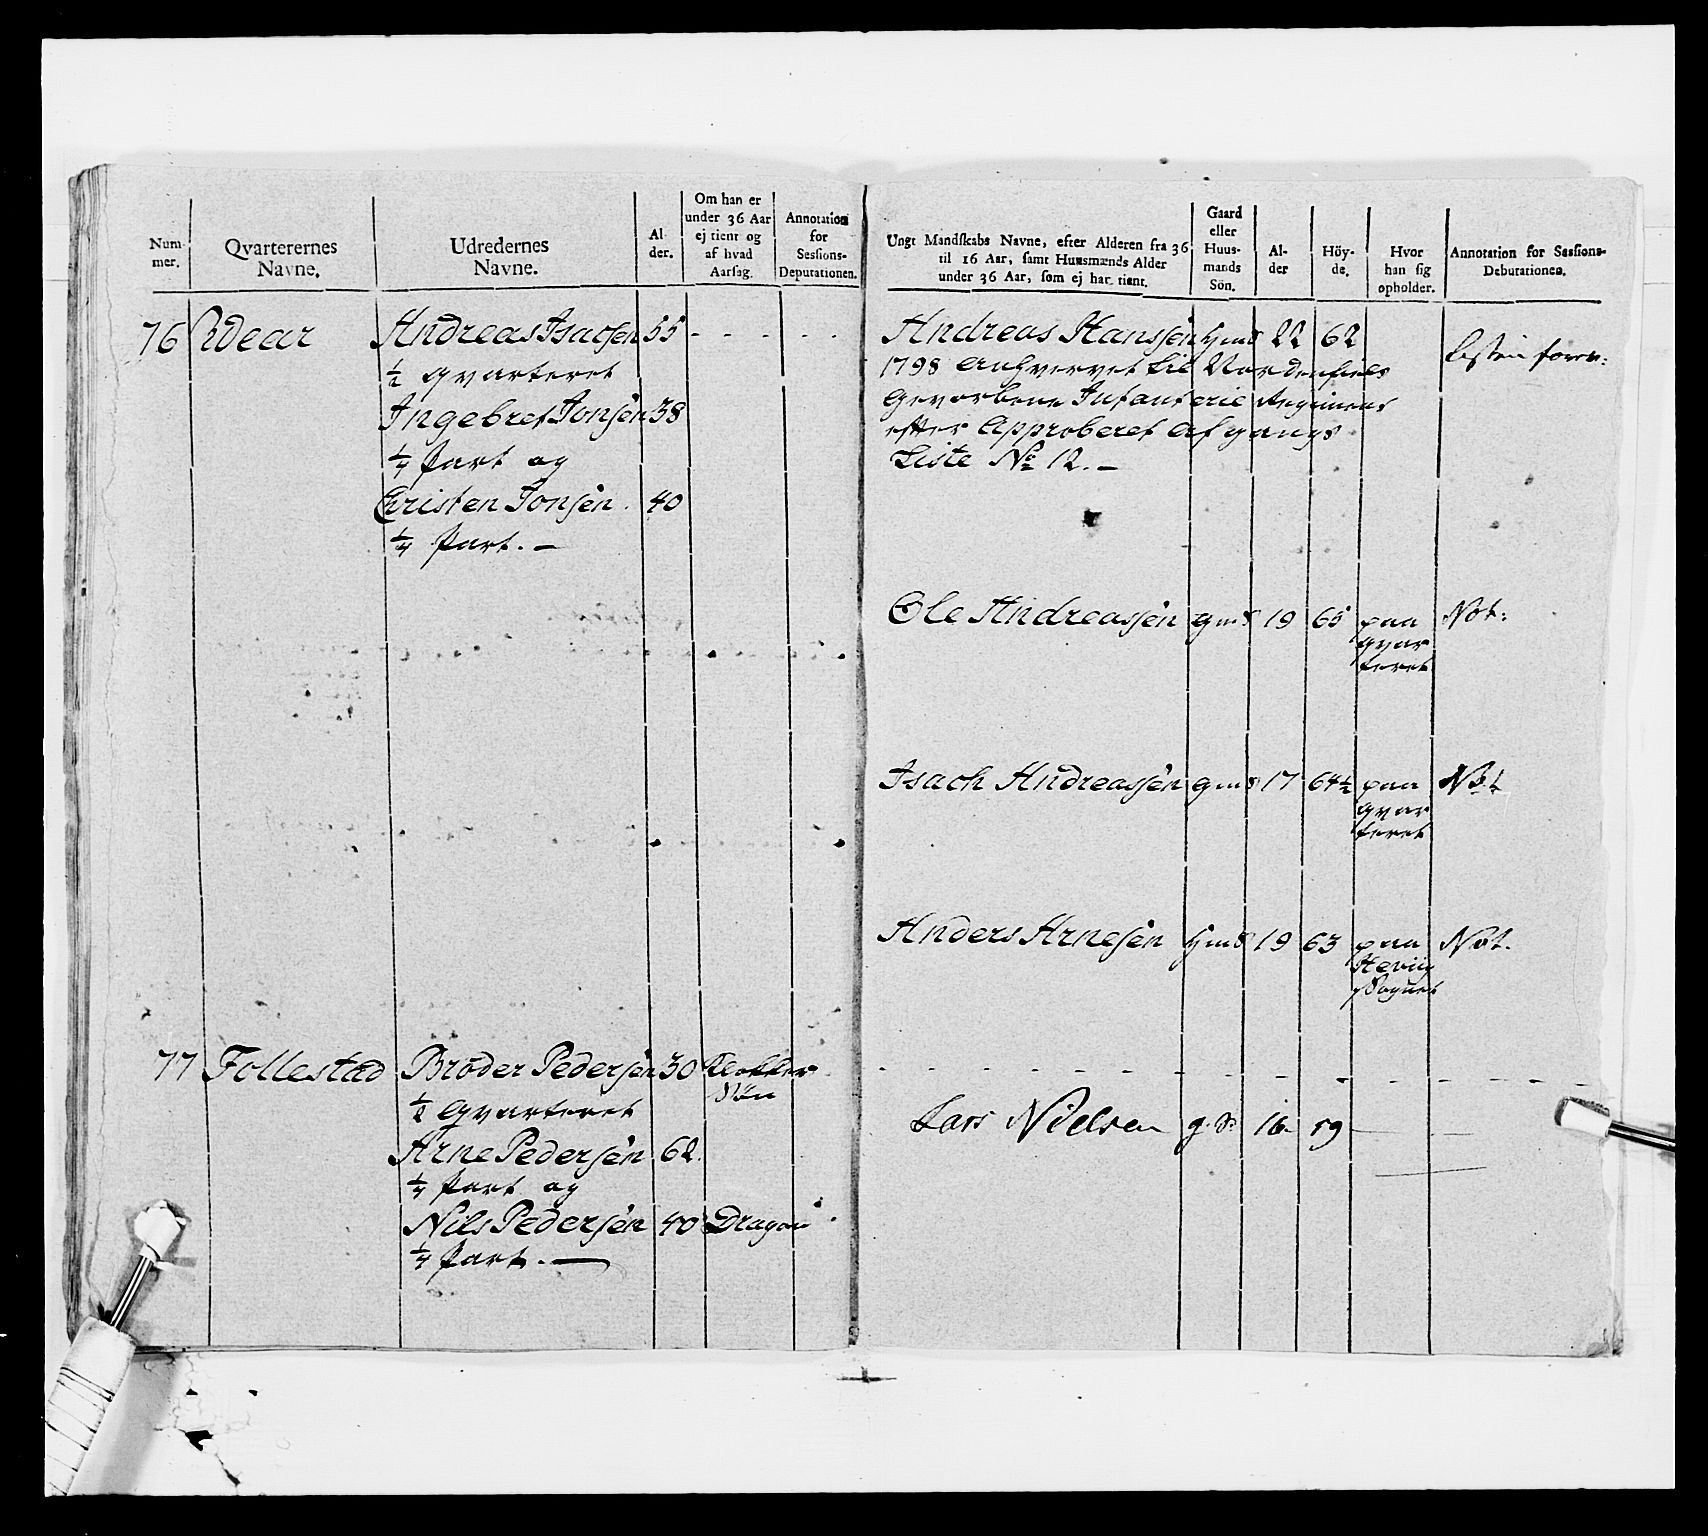 Num-
mer.
Qvarterernes
Navne.
Udredernes
Navne.
Al-
der.
Om han er
under 36 Aar
ej tient og
af hvad
Aarsag.
Annotation
for
Sessions-
Deputationen.
76 Wdear Andreas Isacsen 55 - - - - -
½ qvarteret
Ingebret Jonsen 38
¼ Part og
Christen Jonsen. 40
¼ Part. —
77 Follestad Broder Pedersen 30 Klokker
Søn
½ Qvarteret
Arne Pedersen 62.
¼ Part og
Nils Pedersen 40 Dragon
¼ Part. —
Ungt Mandskabs Navne, efter Alderen fra 36
til 16 Aar, samt Huusmænds Alder
under 36 Aar, som ej har tient.
Gaard
eller
Huus-
mands
Sön.
Al-
der
Höy-
de.
Hvor
han sig
opholder.
Annotation for Sessions-
Deputationen.
Andreas Hanssen hmS 22 62
1798 anhvervet til Nordenfields
Gevorbene Infanterie Regiment
efter Approberet Afgangs
Liste No 12. —
Ole Andreassen gmS 19 65 paa Not:
qvar
teret
Isach Andreassen gmS 17 64½ paa Not
qvar
teret
Anders Arnesen hmS 19 63 paa Not.
Sognet
Lars Nielsen g.S. 16 59